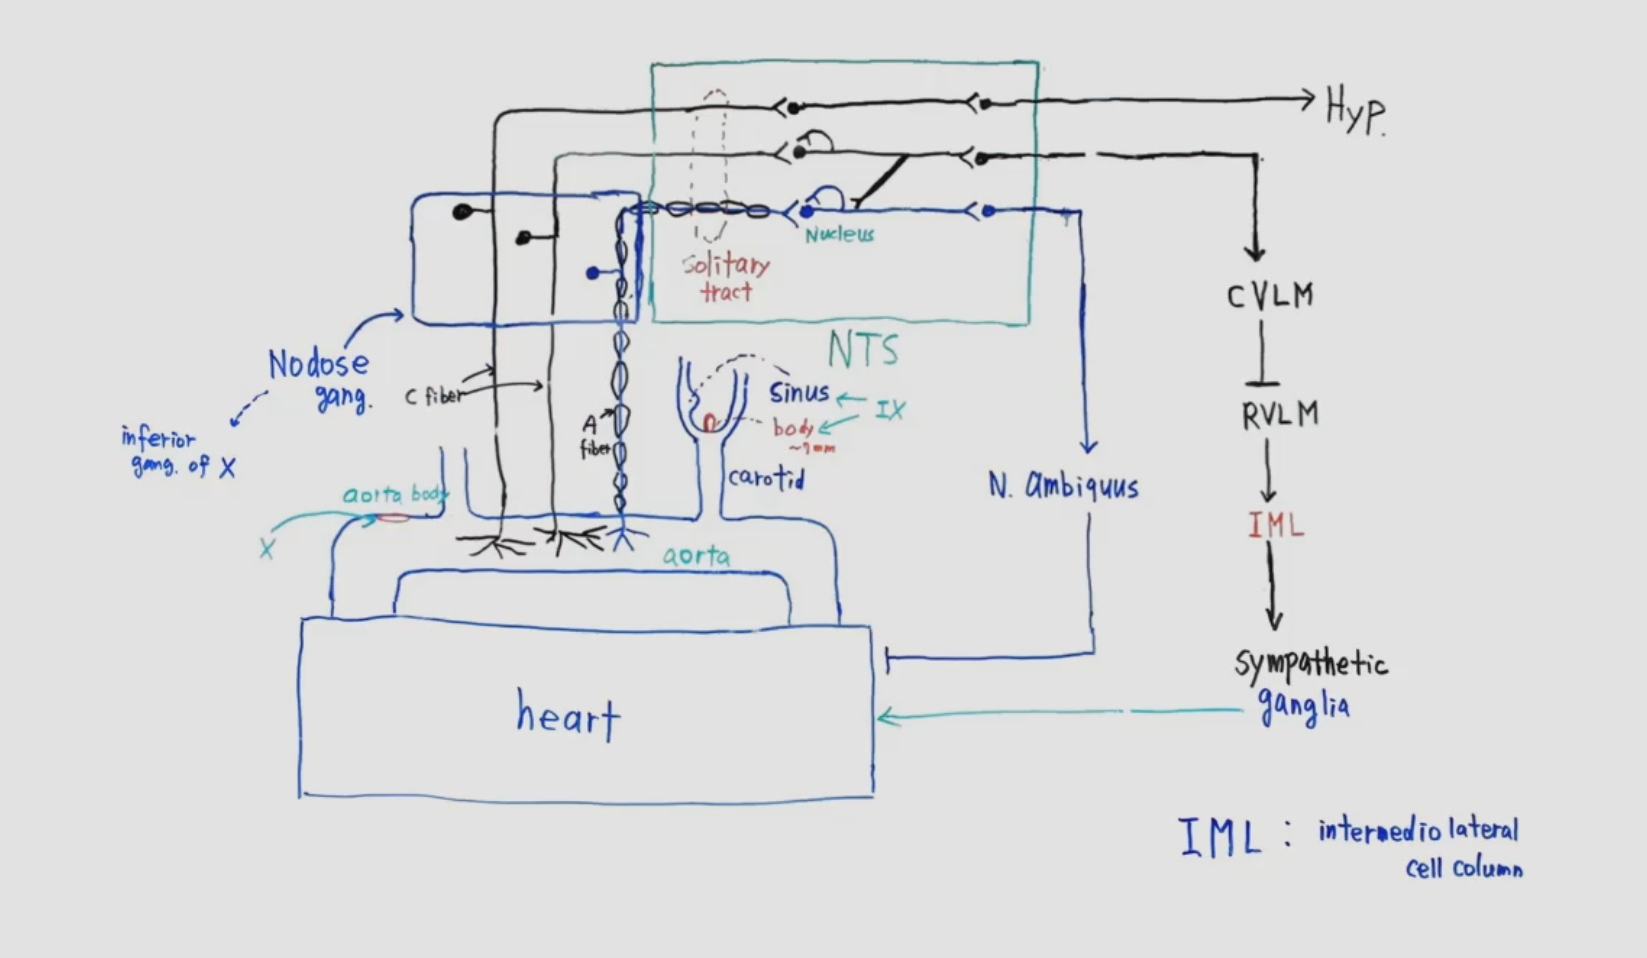 Hyp.
Nucleus
solitary
tract
NTS
CVLM
RVLM
IML
sympathetic
ganglia
N. ambiquus
Nodose
gang.
inferior
gang. of X
C fiber
A
fiber
sinus
IX
body
carotid
aorta body
X
aorta
heart
IML : intermedio lateral
cell column